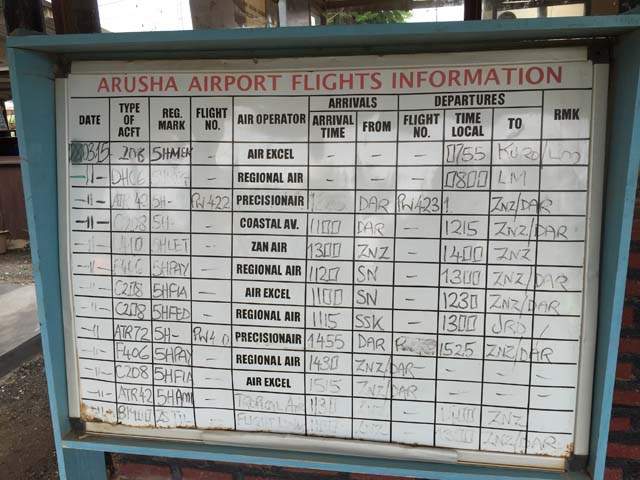 ARUSHA AIRPORT FLIGHTS INFORMATION
DATE TYPE OF ACFT REG. MARK FLIGHT NO. AIR OPERATOR ARRIVALS ARRIVAL TIME FROM DEPARTURES FLIGHT NO. TIME LOCAL TO RMK
208 5HMEK - AIR EXCEL - - - 0755 KURO/LM
-11- DHC6 - REGIONAL AIR - - - 0800 LM
-11- ATR 42 5H- PW422 PRECISIONAIR DAR PW423 ZNZ/DAR
-11- C208 5H- - COASTAL AV. 1100 DAR - 1215 ZNZ/DAR
-11- 5HLET - ZAN AIR 1300 ZNZ - 1400 ZNZ
-11- F406 5HPAY - REGIONAL AIR 1120 SN - 1300 ZNZ/DAR
-11- C208 5HFIA - AIR EXCEL 1100 SN - 1230 ZNZ/DAR
-11- C208 5HFED - REGIONAL AIR 1115 SSK - 1300 JRD /
-11- ATR72 5H- PRECISIONAIR 1455 DAR 1525 ZNZ/DAR
-11- F406 5HPAY - REGIONAL AIR 1430 ZNZ/DAR - - -
-11- C208 5HFIA - AIR EXCEL 1515 ZNZ/DAR - - -
-11- ATR42 5HAM - ZNZ
-11- ZNZ/DAR